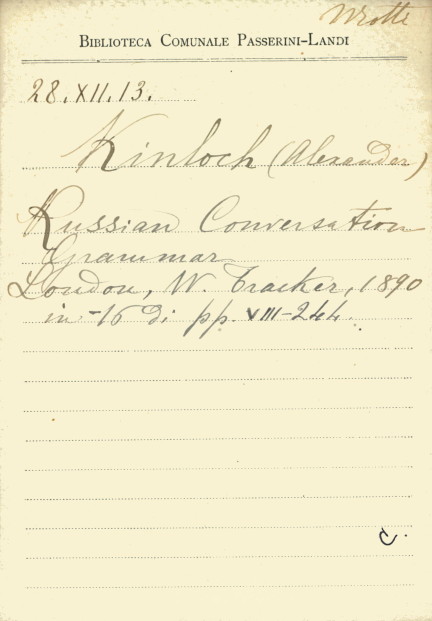 BIBLIOTECA COMUNALE PASSERINI-LANDI
28.XII.13.
Kinloch (Alexander)
Russian Conversation
Grammar
London, W. Tracker, 1890
in -16 di pp. VIII-244.
C.